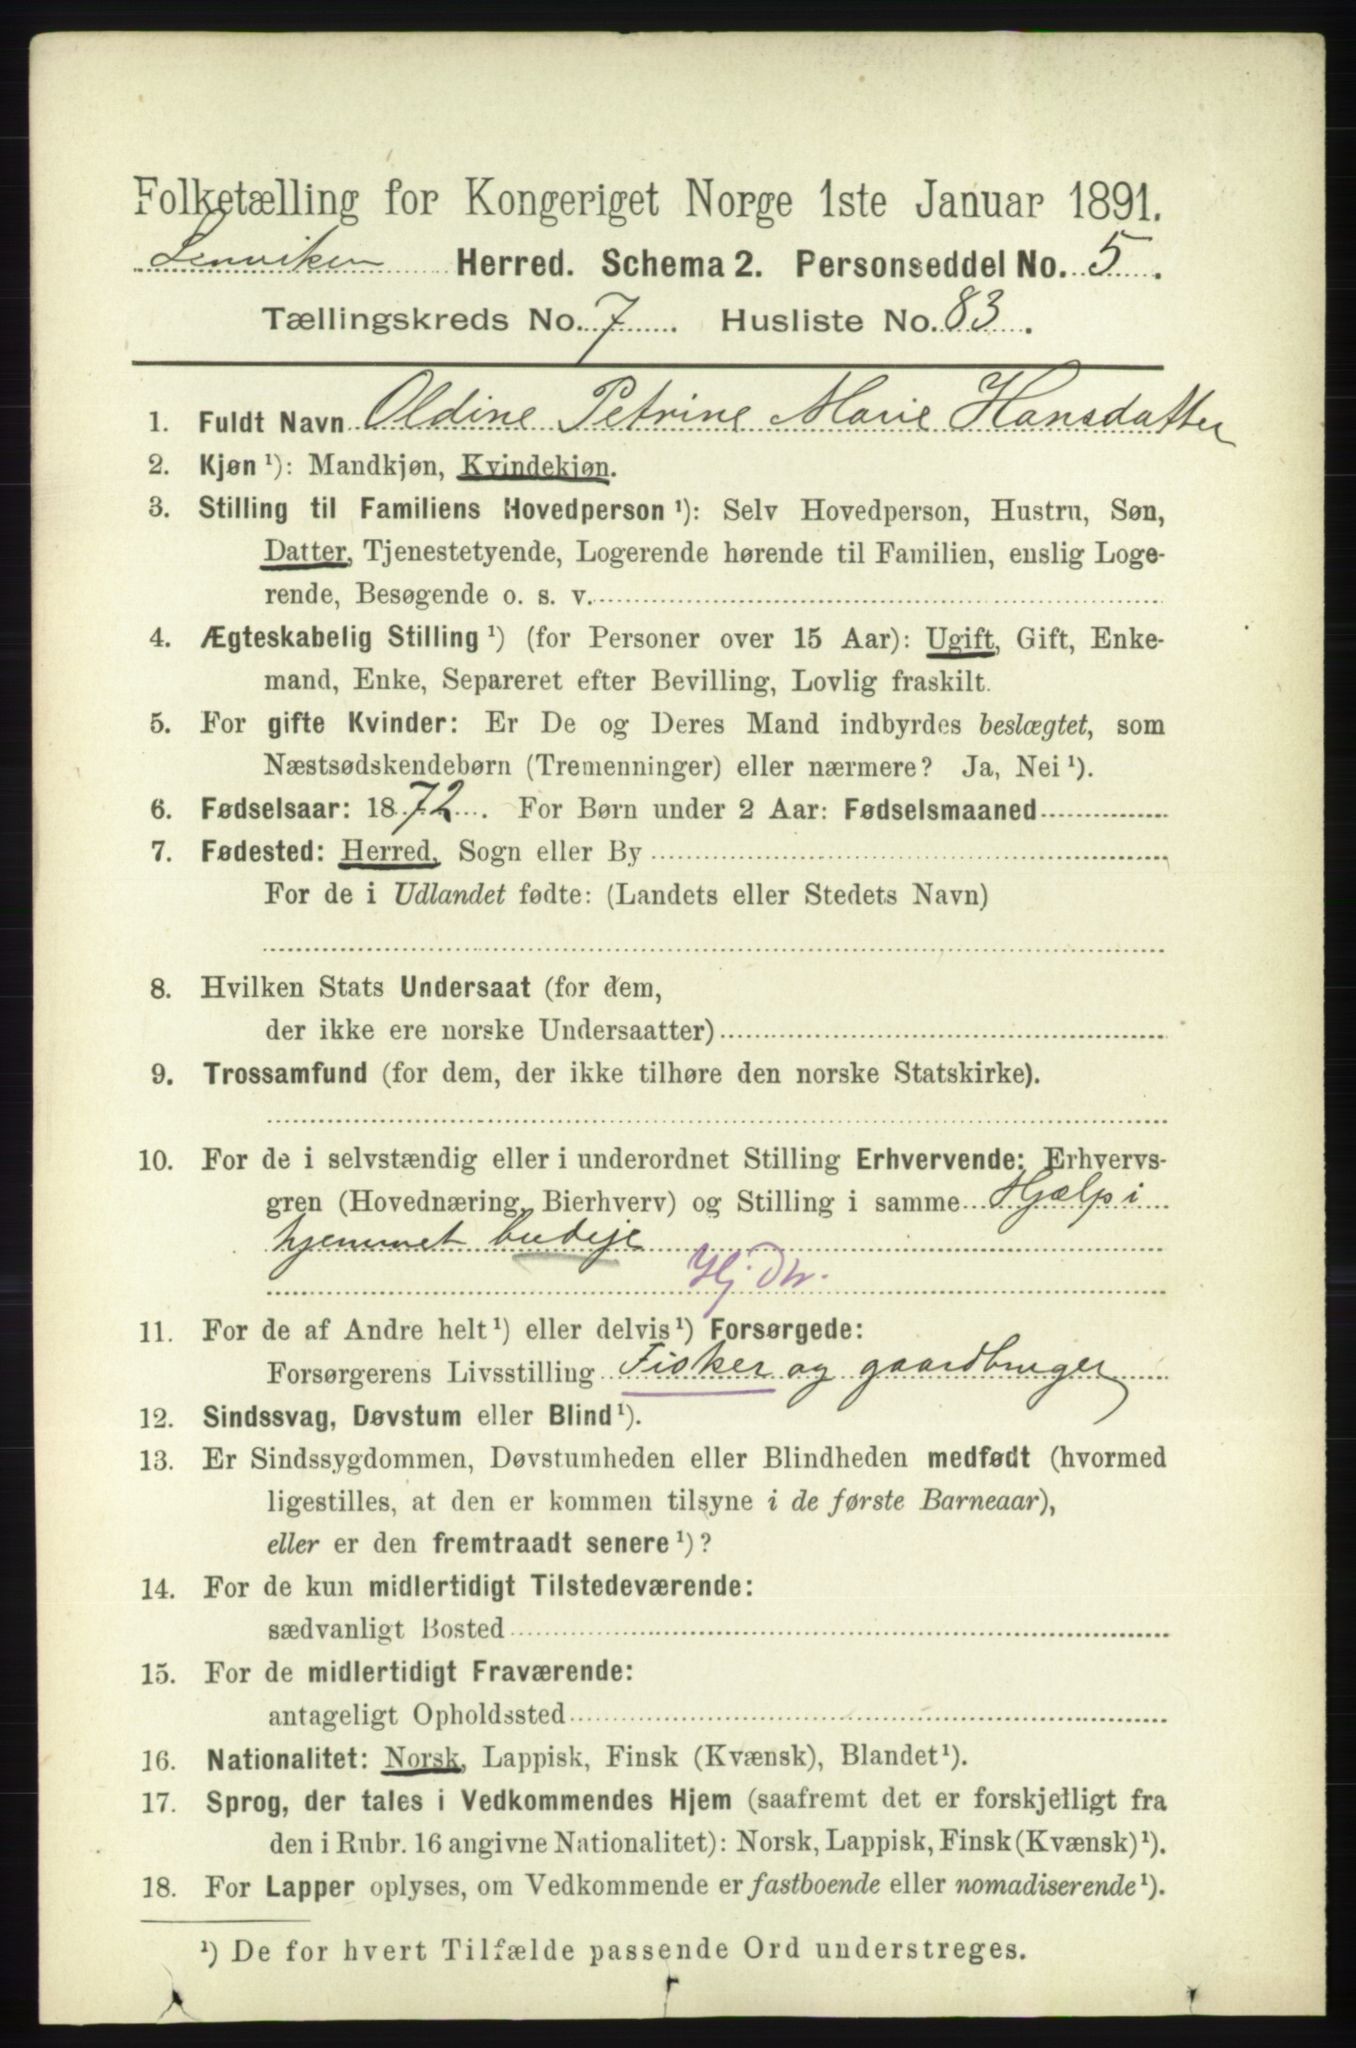 Folketælling for Kongeriget Norge 1ste Januar 1891.
Lenviken Herred. Schema 2. Personseddel No. 5.
Tællingskreds No. 7 Husliste No. 83.
1. Fuldt Navn Oldine Petrine Marie Hansdatter
2. Kjøn ¹): Mandkjøn, Kvindekjøn.
3. Stilling til Familiens Hovedperson ¹): Selv Hovedperson, Hustru, Søn,
Datter, Tjenestetyende, Logerende hørende til Familien, enslig Loge-
rende, Besøgende o. s. v.
4. Ægteskabelig Stilling ¹) (for Personer over 15 Aar): Ugift, Gift, Enke-
mand, Enke, Separeret efter Bevilling, Lovlig fraskilt.
5. For gifte Kvinder: Er De og Deres Mand indbyrdes beslægtet, som
Næstsødskendebørn (Tremenninger) eller nærmere? Ja, Nei ¹).
6. Fødselsaar: 1872. For Børn under 2 Aar: Fødselsmaaned
7. Fødested: Herred, Sogn eller By
For de i Udlandet fødte: (Landets eller Stedets Navn)
8. Hvilken Stats Undersaat (for dem,
der ikke ere norske Undersaatter)
9. Trossamfund (for dem, der ikke tilhøre den norske Statskirke).
10. For de i selvstændig eller i underordnet Stilling Erhvervende: Erhvervs-
gren (Hovednæring, Bierhverv) og Stilling i samme Hjælp i
hjemmet budeje
Hj. Dtr.
11. For de af Andre helt ¹) eller delvis ¹) Forsørgede:
Forsørgerens Livsstilling Fisker og gaardbruger
12. Sindssvag, Døvstum eller Blind ¹).
13. Er Sindssygdommen, Døvstumheden eller Blindheden medfødt (hvormed
ligestilles, at den er kommen tilsyne i de første Barneaar),
eller er den fremtraadt senere ¹)?
14. For de kun midlertidigt Tilstedeværende:
sædvanligt Bosted
15. For de midlertidigt Fraværende:
antageligt Opholdssted
16. Nationalitet: Norsk, Lappisk, Finsk (Kvænsk), Blandet ¹).
17. Sprog, der tales i Vedkommendes Hjem (saafremt det er forskjelligt fra
den i Rubr. 16 angivne Nationalitet): Norsk, Lappisk, Finsk (Kvænsk) ¹).
18. For Lapper oplyses, om Vedkommende er fastboende eller nomadiserende ¹).
¹) De for hvert Tilfælde passende Ord understreges.